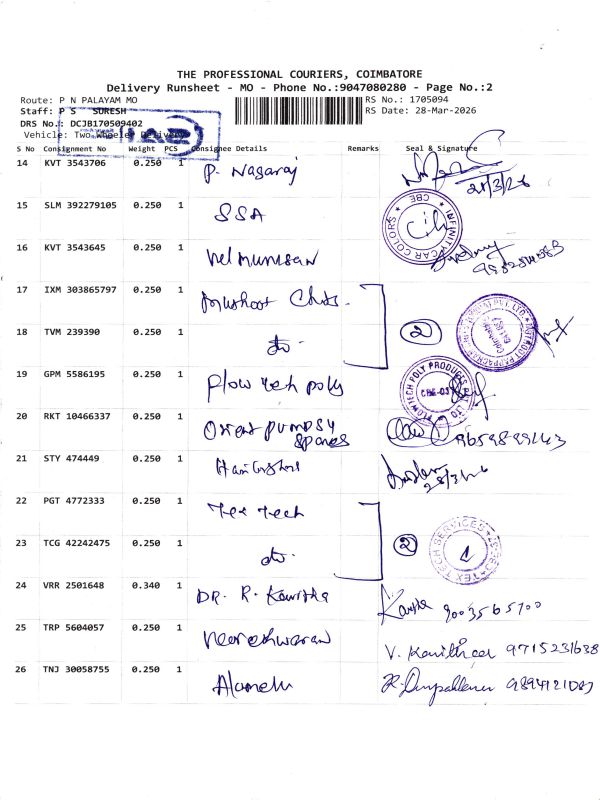 THE PROFESSIONAL COURIERS, COIMBATORE
Delivery Runsheet - MO - Phone No.:9047080280 - Page No.:2
Route: P N PALAYAM MO
RS No.: 1705094
Staff: P S SURESH
RS Date: 28-Mar-2026
DRS No.: DCJB170509402
Vehicle: Two Wheeler Delivery
S No Consignment No Weight PCS Consignee Details Remarks Seal & Signature
14 KVT 3543706 0.250 1 P. Nagaraj 28/3/26
15 SLM 392279105 0.250 1 SSA INFINITY CAR COLORS CBE
16 KVT 3543645 0.250 1 Velmurugan
17 IXM 303865797 0.250 1 2
18 TVM 239390 0.250 1 do
19 GPM 5586195 0.250 1 Flow tech poly FLOWTECH POLY PRODUCTS CBE-03
20 RKT 10466337 0.250 1 pumps 4 spares 9659899143
21 STY 474449 0.250 1 28/3/26
22 PGT 4772333 0.250 1 Tex Tech 2 TEX TECH SERVICES
23 TCG 42242475 0.250 1 do
24 VRR 2501648 0.340 1 DR. R. Kavitha Kavitha 9003565700
25 TRP 5604057 0.250 1 Veereshwaran V. 9715231638
26 TNJ 30058755 0.250 1 Alamelu